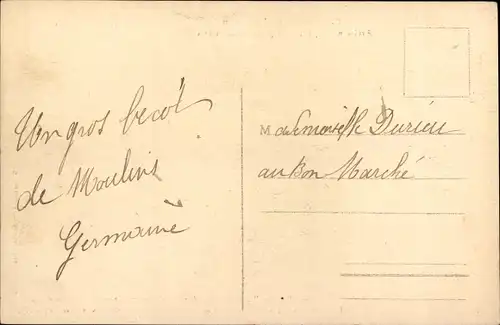 Un gros becot
de Moulins
Germaine
Mademoiselle Durieu
au Bon Marché